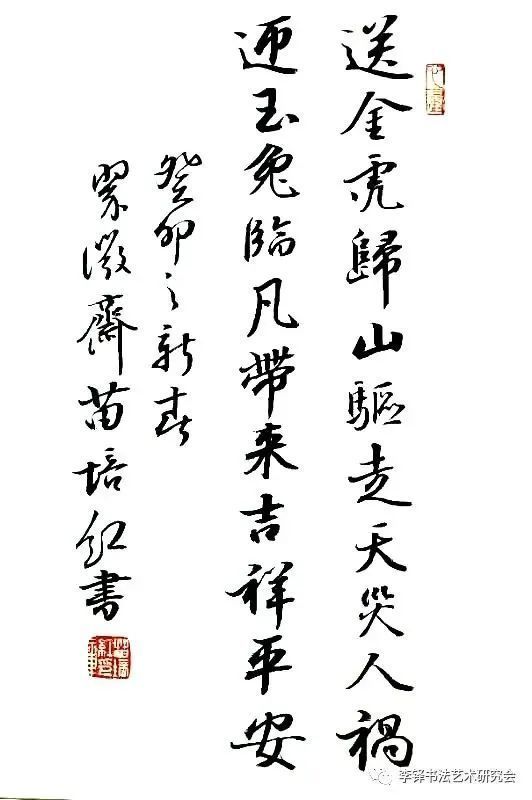 送金虎歸山驅走天災人禍
迎玉兔臨凡帶来吉祥平安
癸卯之新春
累微齋苗培红書
李铎书法艺术研究会